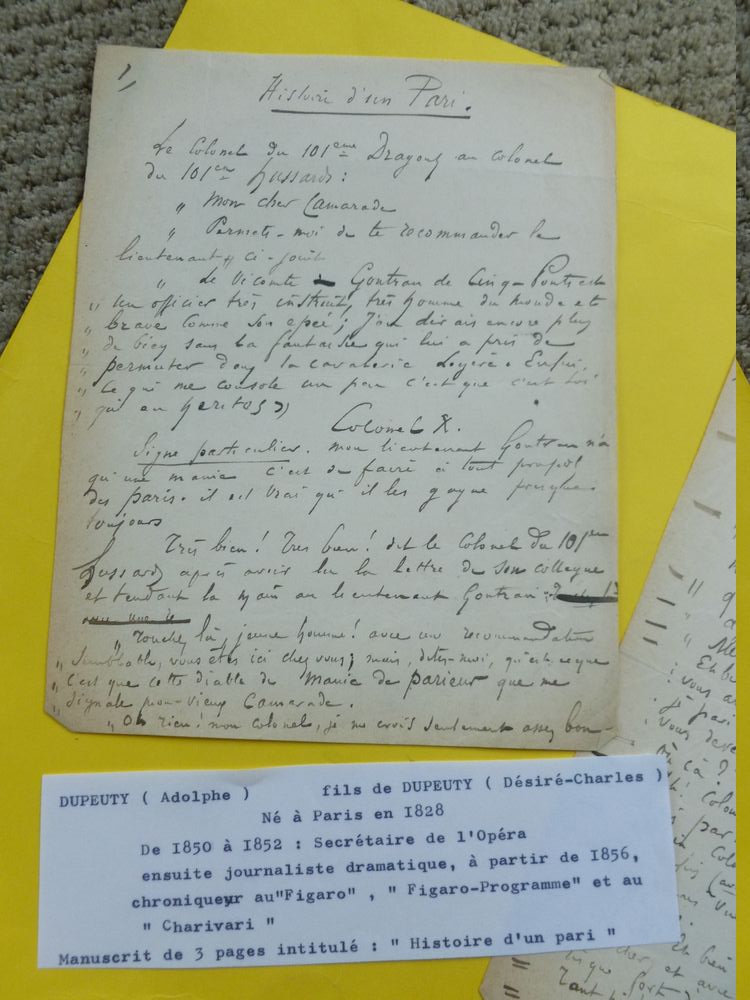 1/
Histoire d'un Pari.
Le Colonel du 101eme Dragons au colonel
du 101eme hussards :
" Mon cher Camarade
" Permets-moi de te recommander le
lieutenant ci-joint
" Le Vicomte Gontran de Cinq-Ponts est
" un officier très instruit, très homme du monde et
" brave comme son epée; J'en dirais encore plus
" de bien sans la fantaisie qui lui a pris de
" permuter dans la cavalerie légère. Enfin,
" ce qui me console un peu c'est que c'est toi
" qui en herites »
Colonel X.
Signe particulier. mon lieutenant Gontran n'a
qu'une manie c'est de faire à tout propos
des paris. il est vrai qu'il les gagne presque
toujours
Très bien! Très bien! dit le Colonel du 101eme
hussards après avoir lu la lettre de son collègue
et tendant la main au lieutenant Gontran
" Touchez là, jeune homme! avec une recommandation
" semblable, vous êtes ici chez vous; mais, dites-moi, qu'est-ce que
" c'est que cette diable de Manie de parieur que me
" signale mon vieux Camarade.
" Oh rien! mon colonel, je me crois seulement assez bon-
DUPEUTY ( Adolphe ) fils de DUPEUTY ( Désiré-Charles )
Né à Paris en I828
De I850 à I852 : Secrétaire de l'Opéra
ensuite journaliste dramatique, à partir de I856,
chroniqueur au"Figaro" , " Figaro-Programme" et au
" Charivari "
Manuscrit de 3 pages intitulé : " Histoire d'un pari "